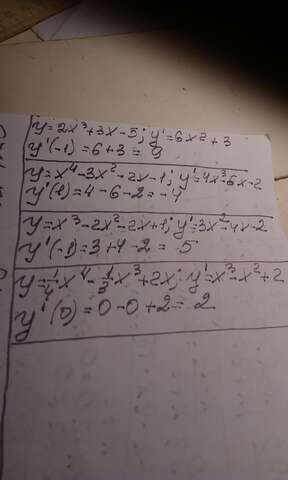 y=2x³+3x-5; y'=6x²+3
y'(-1)=6+3=9
y=x⁴-3x²-2x-1; y'=4x³-6x-2
y'(1)=4-6-2=-4
y=x³-2x²-2x+1; y'=3x²-4x-2
y'(-1)=3+4-2=5
y=1/4x⁴-1/3x³+2x; y'=x³-x²+2
y'(0)=0-0+2=2